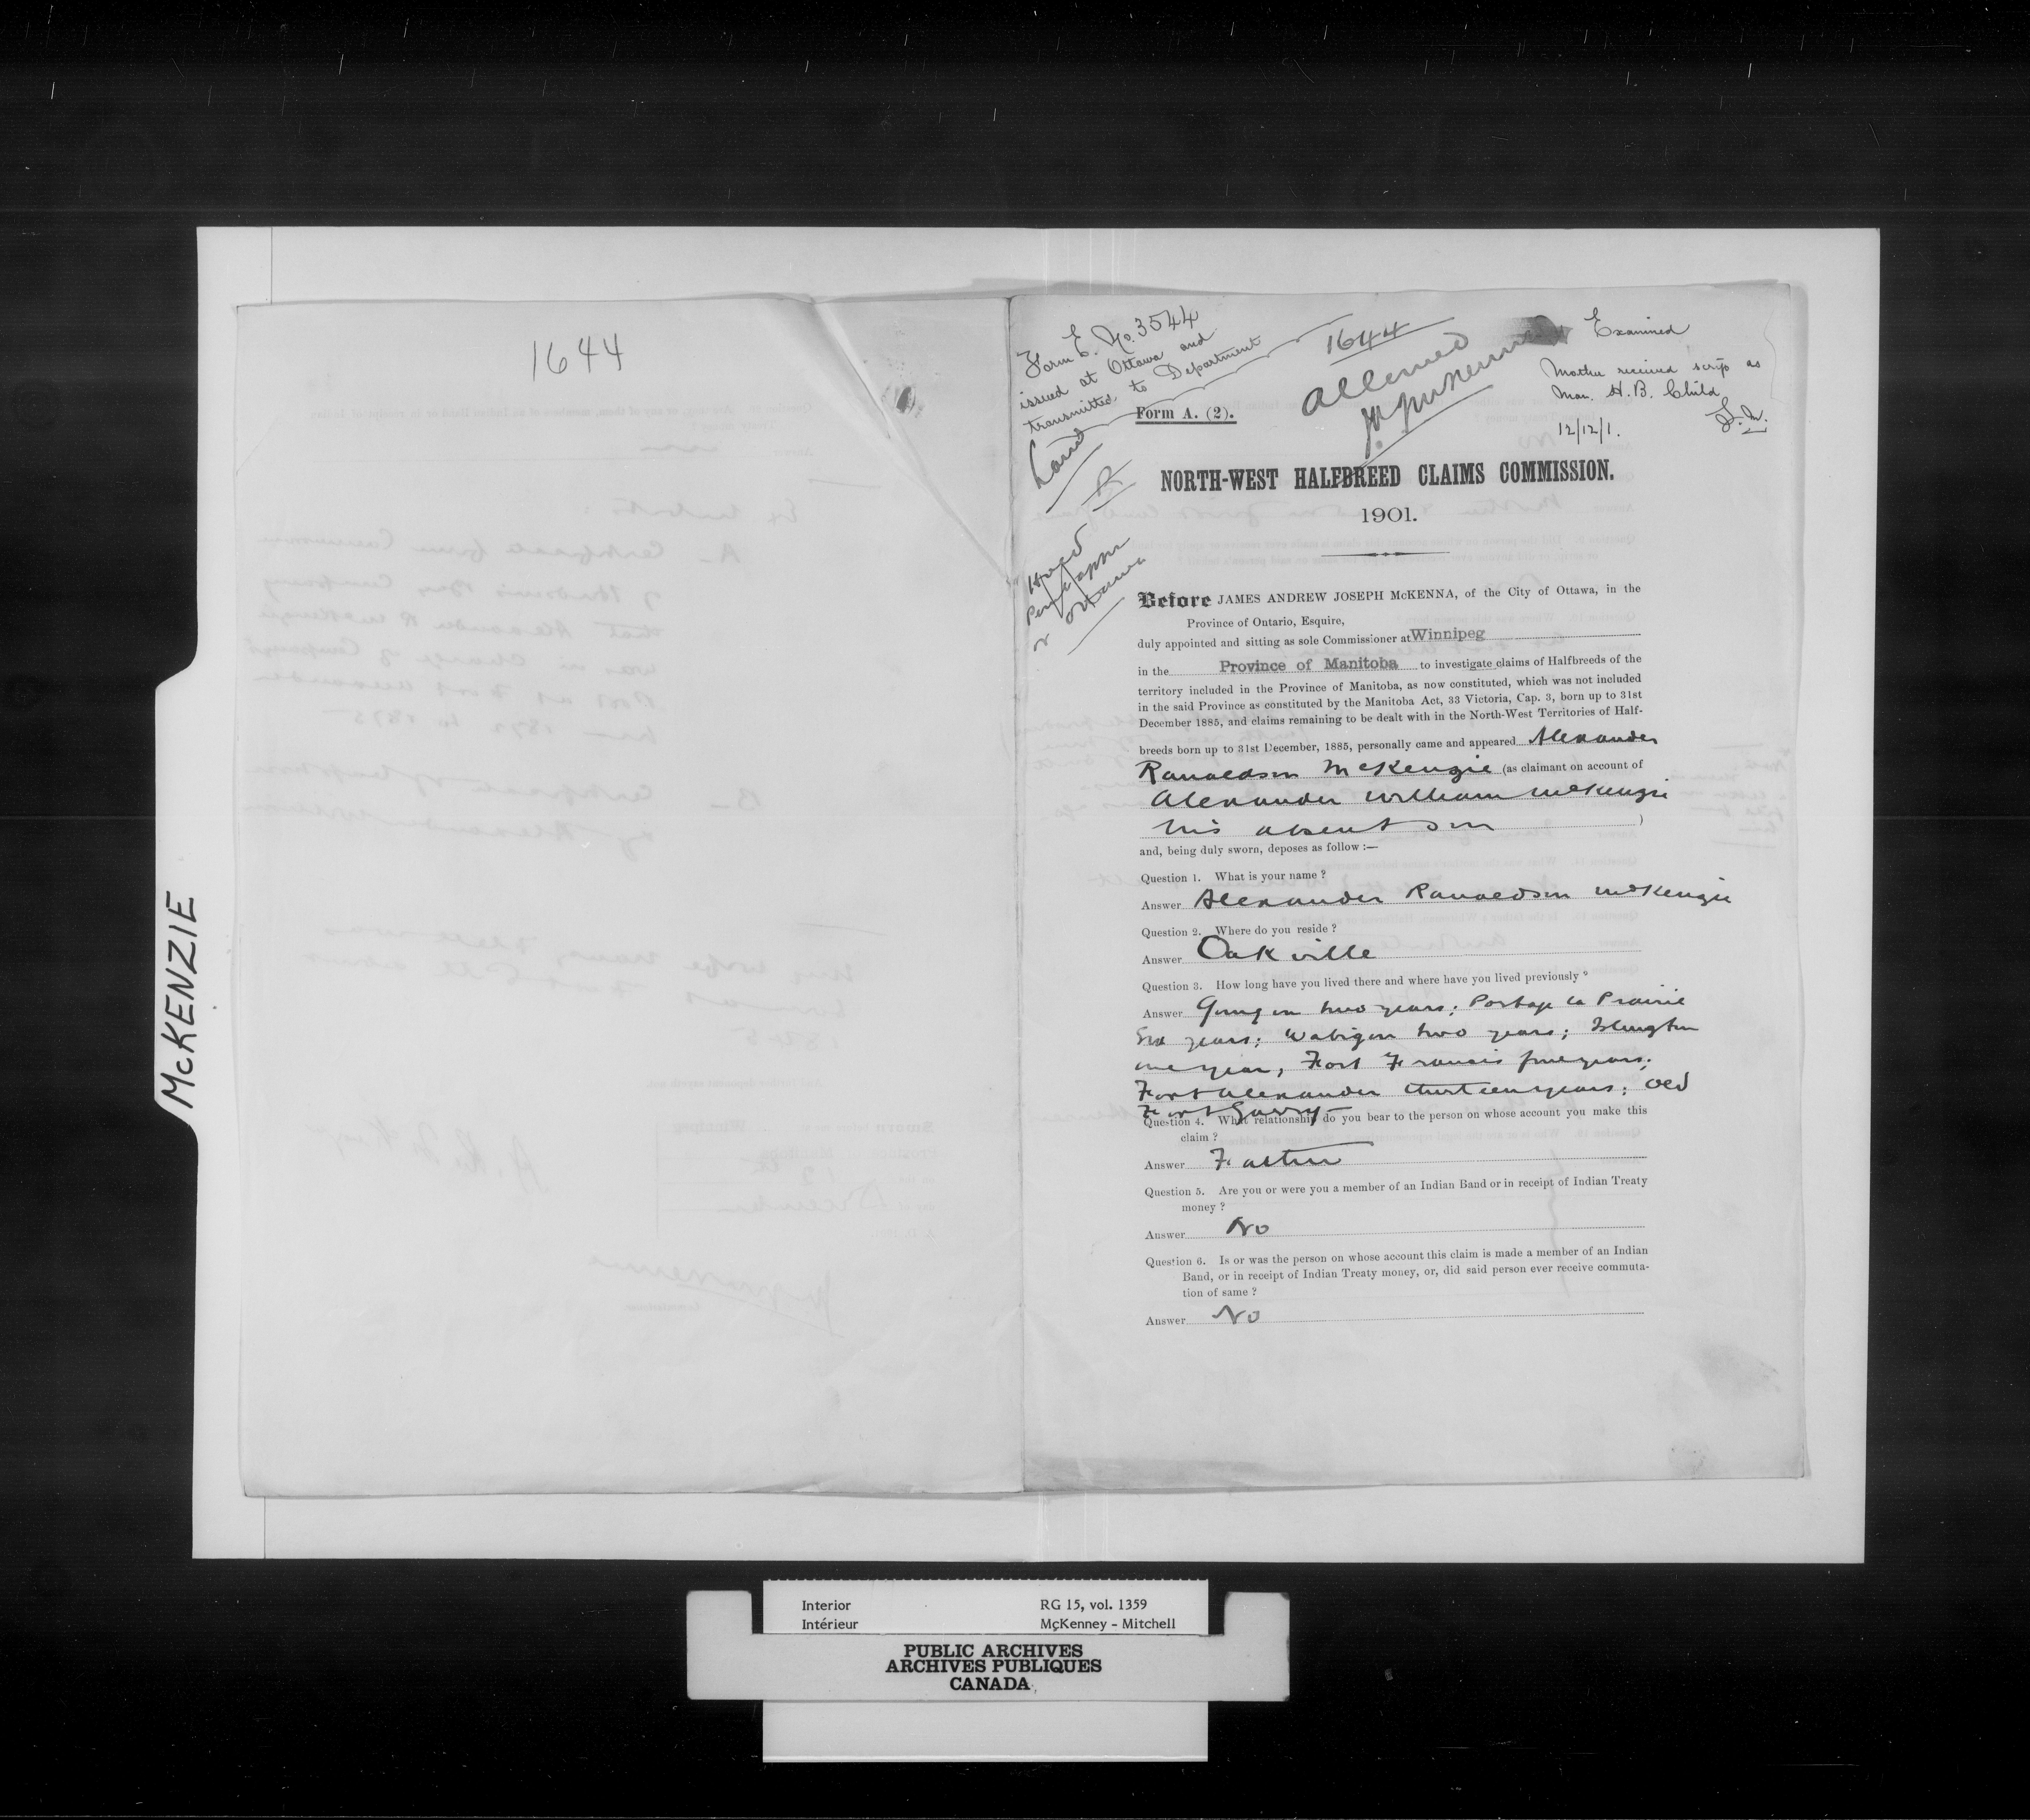 McKENZIE
1644
Form E. No. 3544
issued at Ottawa and
transmitted to Department
1644
Allowed
Examined
Mother received scrip as
Man. H.B. Child
12/12/1.
Form A. (2).
Land
NORTH-WEST HALFBREED CLAIMS COMMISSION.
1901.
Before JAMES ANDREW JOSEPH McKENNA, of the City of Ottawa, in the
Province of Ontario, Esquire,
duly appointed and sitting as sole Commissioner at Winnipeg
in the Province of Manitoba to investigate claims of Halfbreeds of the
territory included in the Province of Manitoba, as now constituted, which was not included
in the said Province as constituted by the Manitoba Act, 33 Victoria, Cap. 3, born up to 31st
December 1885, and claims remaining to be dealt with in the North-West Territories of Half-
breeds born up to 31st December, 1885, personally came and appeared Alexander
Ranaldson McKenzie (as claimant on account of
Alexander William McKenzie
his absent son )
and, being duly sworn, deposes as follow :—
Question 1. What is your name ?
Answer Alexander Ranaldson McKenzie
Question 2. Where do you reside ?
Answer Oakville
Question 3. How long have you lived there and where have you lived previously ?
Answer Going on two years; Portage la Prairie
Six years; Wabigon two years; Islington
one year, Fort Francis five years;
Fort Alexander thirteen years; Old
Fort Garry
Question 4. What relationship do you bear to the person on whose account you make this
claim ?
Answer Father
Question 5. Are you or were you a member of an Indian Band or in receipt of Indian Treaty
money ?
Answer No
Question 6. Is or was the person on whose account this claim is made a member of an Indian
Band, or in receipt of Indian Treaty money, or, did said person ever receive commuta-
tion of same ?
Answer No
Interior RG 15, vol. 1359
Intérieur McKenney - Mitchell
PUBLIC ARCHIVES
ARCHIVES PUBLIQUES
CANADA